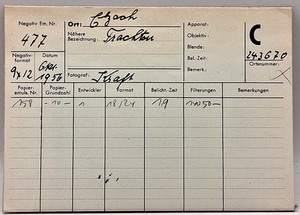 Negativ Em. Nr.
477
Ort: Elzach
Nähere
Bezeichnung: Trachten
Apparat:
Objektiv:
Blende:
Bel.-Zeit:
Bemerk.:
C
243670
Ortsnummer:
Negativ-
format
9x12
Datum
Okt.
1956
Fotograf:
Papier-
emuls. Nr.
Papier-
Grundzahl
Entwickler
Format
Belicht.-Zeit
Filterungen
Bemerkungen
158 -10- 1 18/24 19